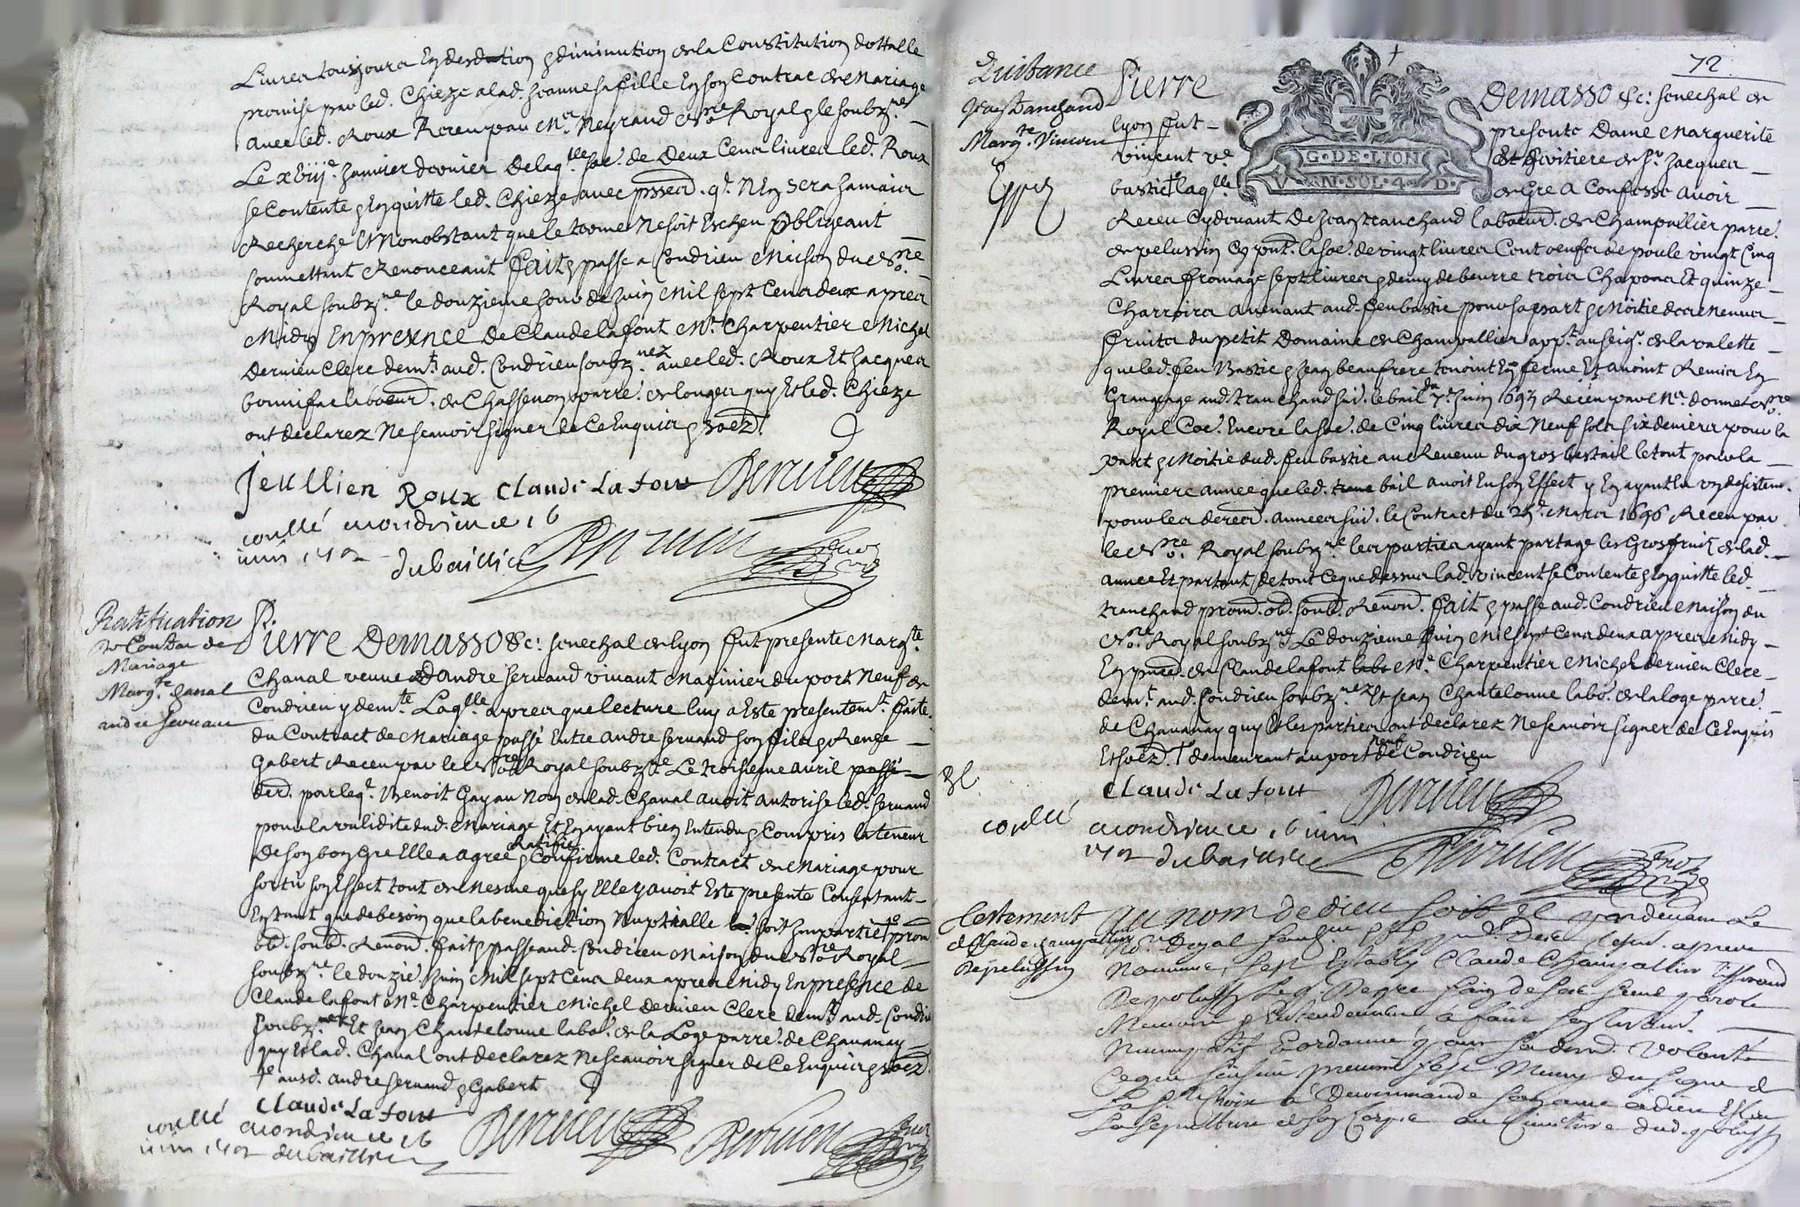 Livres tousjours En deduction & diminution de la Constitution dottalle
promise par led. Chieze a lad. Jeanne sa fille En son Contrac de Mariage
avec led. Roux Receu par Me. Meyrand nore Royal & le soubzné
Le xviije. Janvier dernier De laqlle soe. de Deux Cens livres led. Roux
se Contente & En quitte led. Chieze avec promesse qe. N'En sera jamais
Recherché Et Nonobstant que le terme Ne soit Escheu Obligeant
soumettant Renonceant fait & passé a Condrieu Maison du nore
Royal soubzné le douzieme jour de Juin Mil sept Cens deux apres
Midy En presence De Claude lafont Me. Charpentier Michel
Dernieu Clerc demt. aud. Condrieu soubznez avec led. Roux Et Jacques
bonnifac laboeur. de Chassenon parre. de longes quy Et led. Chieze
ont declarez Ne scavoir signer de Ce Enquis & soez.
Jeullien Roux Claude La font Dervieu
conllé a condrieu ce 16
juin 1702 dubaillie Dervieu
Ratification
de Contrac de
Mariage
Margte. Chanal
andre servand
Pierre Demasso &c: senechal de lyon fut presente Margte.
Chanal veuve d'andre servand vivant Marinier du port Neuf de
Condrieu y demte. Laqlle apres que lecture luy a Este presentemt. faite
du Contract de Mariage passé Entre andre servand son fils & Renee
Gabert Receu par le nore Royal soubzné Le troisieme avril passé
derd. par leql. Benoit Gayau Nom de lad. Chanal avoit autorisé led. servand
pour la validite dud. Mariage Et En ayant bien Entendu & Compris la teneur
De son bon gre Elle a agree Ratifie & Confirme led. Contract de Mariage pour
sortir son Effect tout de Mesme que sy Elle y avoit Este presente Consentant
En tant que de besoin que la benediction Nuptialle soit Impartie prom
obl. soub. Renon. fait & passé aud. Condrieu Maison du nore Royal
soubzné le douzie. Juin Mil sept Cens deux apres Midy En presence de
Claude lafont Me. Charpentier Michel Dernieu Clerc demt. aud. Condrieu
soubznez Et Jean Chantelonne labo. de la Loge parre. de Chavanay
quy Et lad. Chanal ont declarez Ne scavoir signer de Ce Enquis & soez
& ausd. andre servand & Gabert
Claude La font
conllé a condrieu ce 16
juin 1702 dubaillie Dervieu Dervieu
72
Quittance
Jean tranchand
Margte. Vincent
Expé
Pierre Demasso &c: senechal de
lyon fut presente Dame Marguerite
vincent ve. Et heritiere de Sr. Jacques
bastie laqlle de Gre a Confessé avoir
G·DE·LION
V·N·SOL·4·D·
Receu Cy devant De Jean tranchand laboeur. de Champallier parre.
de pelussin Cy pont. la soe. de vingt livres Cent oeufs de poule vingt Cinq
Livres fromage sept livres & demy de beurre trois Chapons Et quinze
Charrois avenant aud. feu bastie pour sa part & Moitié des Menus
fruits du petit Domaine de Champallier appt. au seigr. de la valette
que led. feu Bastie & Jean beaufrere tenoint En ferme Et avoint Remis En
Grangeage aud. tranchand sui. le bail du 7e. Juin 1695 Receu par Me. donnet nore
Royal Coe. Encore la soe. de Cinq livres dix Neuf sols six deniers pour la
part & Moitié dud. feu bastie au Revenu du gros bestail le tout pour la
premiere annee que led. bail avoit En son Effect y En ayant Eu un desistem.
pour les deres. annees sui. le Contract du 25e. Mars 1696 Receu par
le nore Royal soubzné les parties ayant partagé les Gros fruits de lad.
annee Et partant de tout Ce que dessus lad. vincent se Contente & En quitte led.
tranchand prom. obl. soub. Renon. fait & passé aud. Condrieu Maison du
nore Royal soubzné Le douzieme Juin Mil sept Cens deux apres Midy
En pnce. de Claude lafont Me. Charpentier Michel dernieu Clerc
demt. aud. Condrieu soubznez Et Jean Chantelonne labo. de la loge parre.
de Chavanay quy Et les parties ont declarez Ne scavoir signer de Ce Enquis
Et soez. & demeurant au port neuf de Condrieu
Claude La font Dervieu
conllé a condrieu ce 16 juin
1702 dubaillie Dervieu
Testement
de Claude Champallier
De pelussin
Au nom de dieu soit Par devant Le
no. Royal soubsigné
nommés sest Estably Claude Champallier tisserand
De pelussin Leql. De gre sain de ses sens parole
memoire & Entendement a faict son testam.
nuncupatif & ordonné sa dern. volonte
Comme sensuit premier sest muny du signe de
La Ste Croix a Recommandé son ame a dieu Esleu
La sepulture de son Corps au Cimetiere dud. pelussin